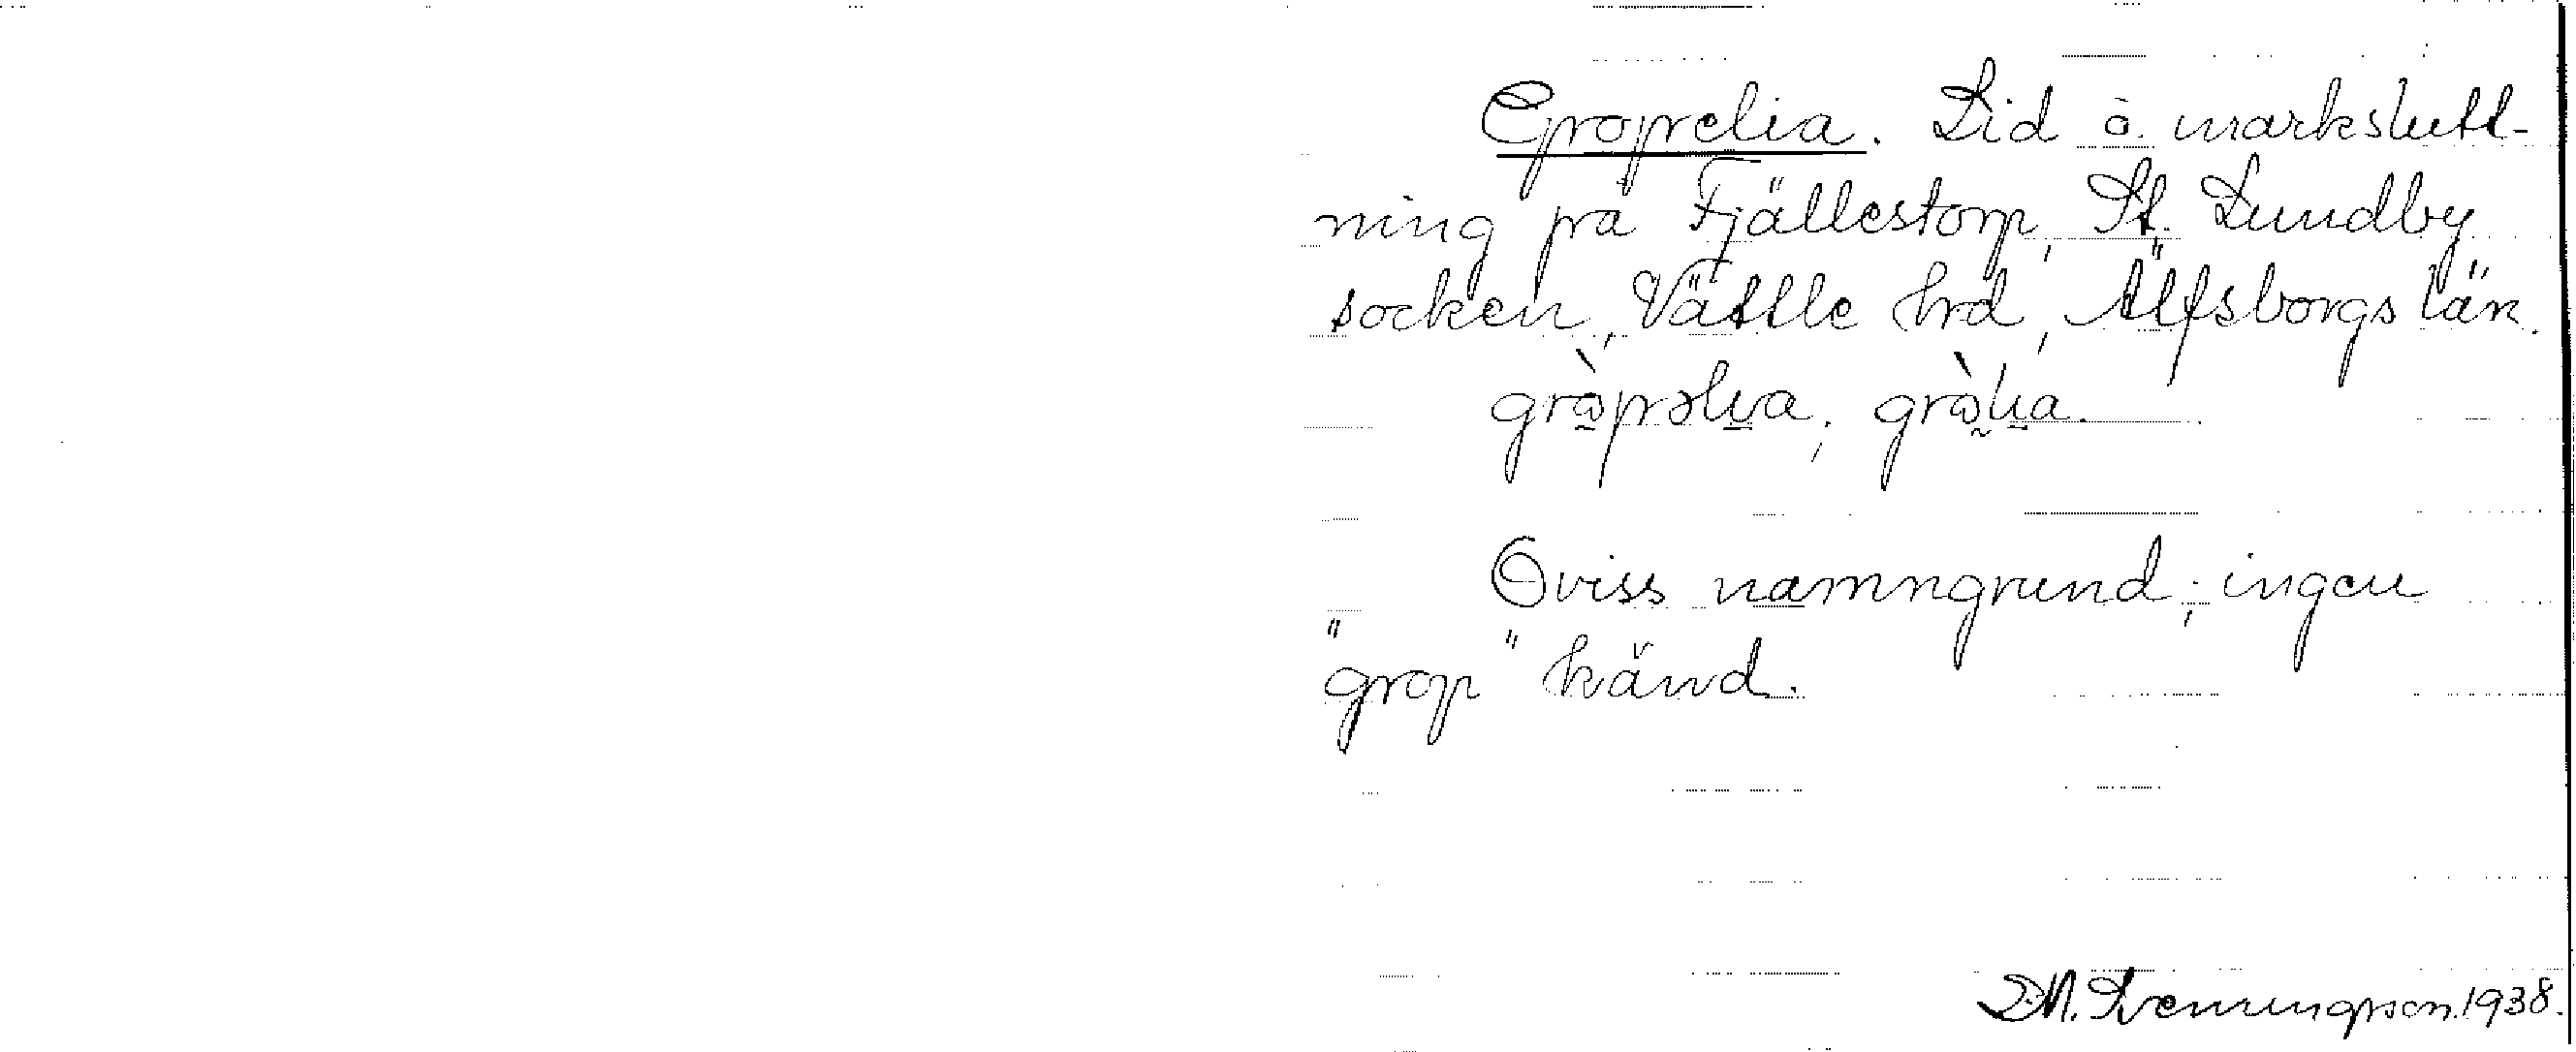 Gropelia. Lid å markslutt-
ning på Fjällestorp, St. Lundby
socken, Vättle hrd, Älfsborgs län.
gròpəlia, gròlia.
Oviss namngrund; ingen
"grop" känd.
1938.